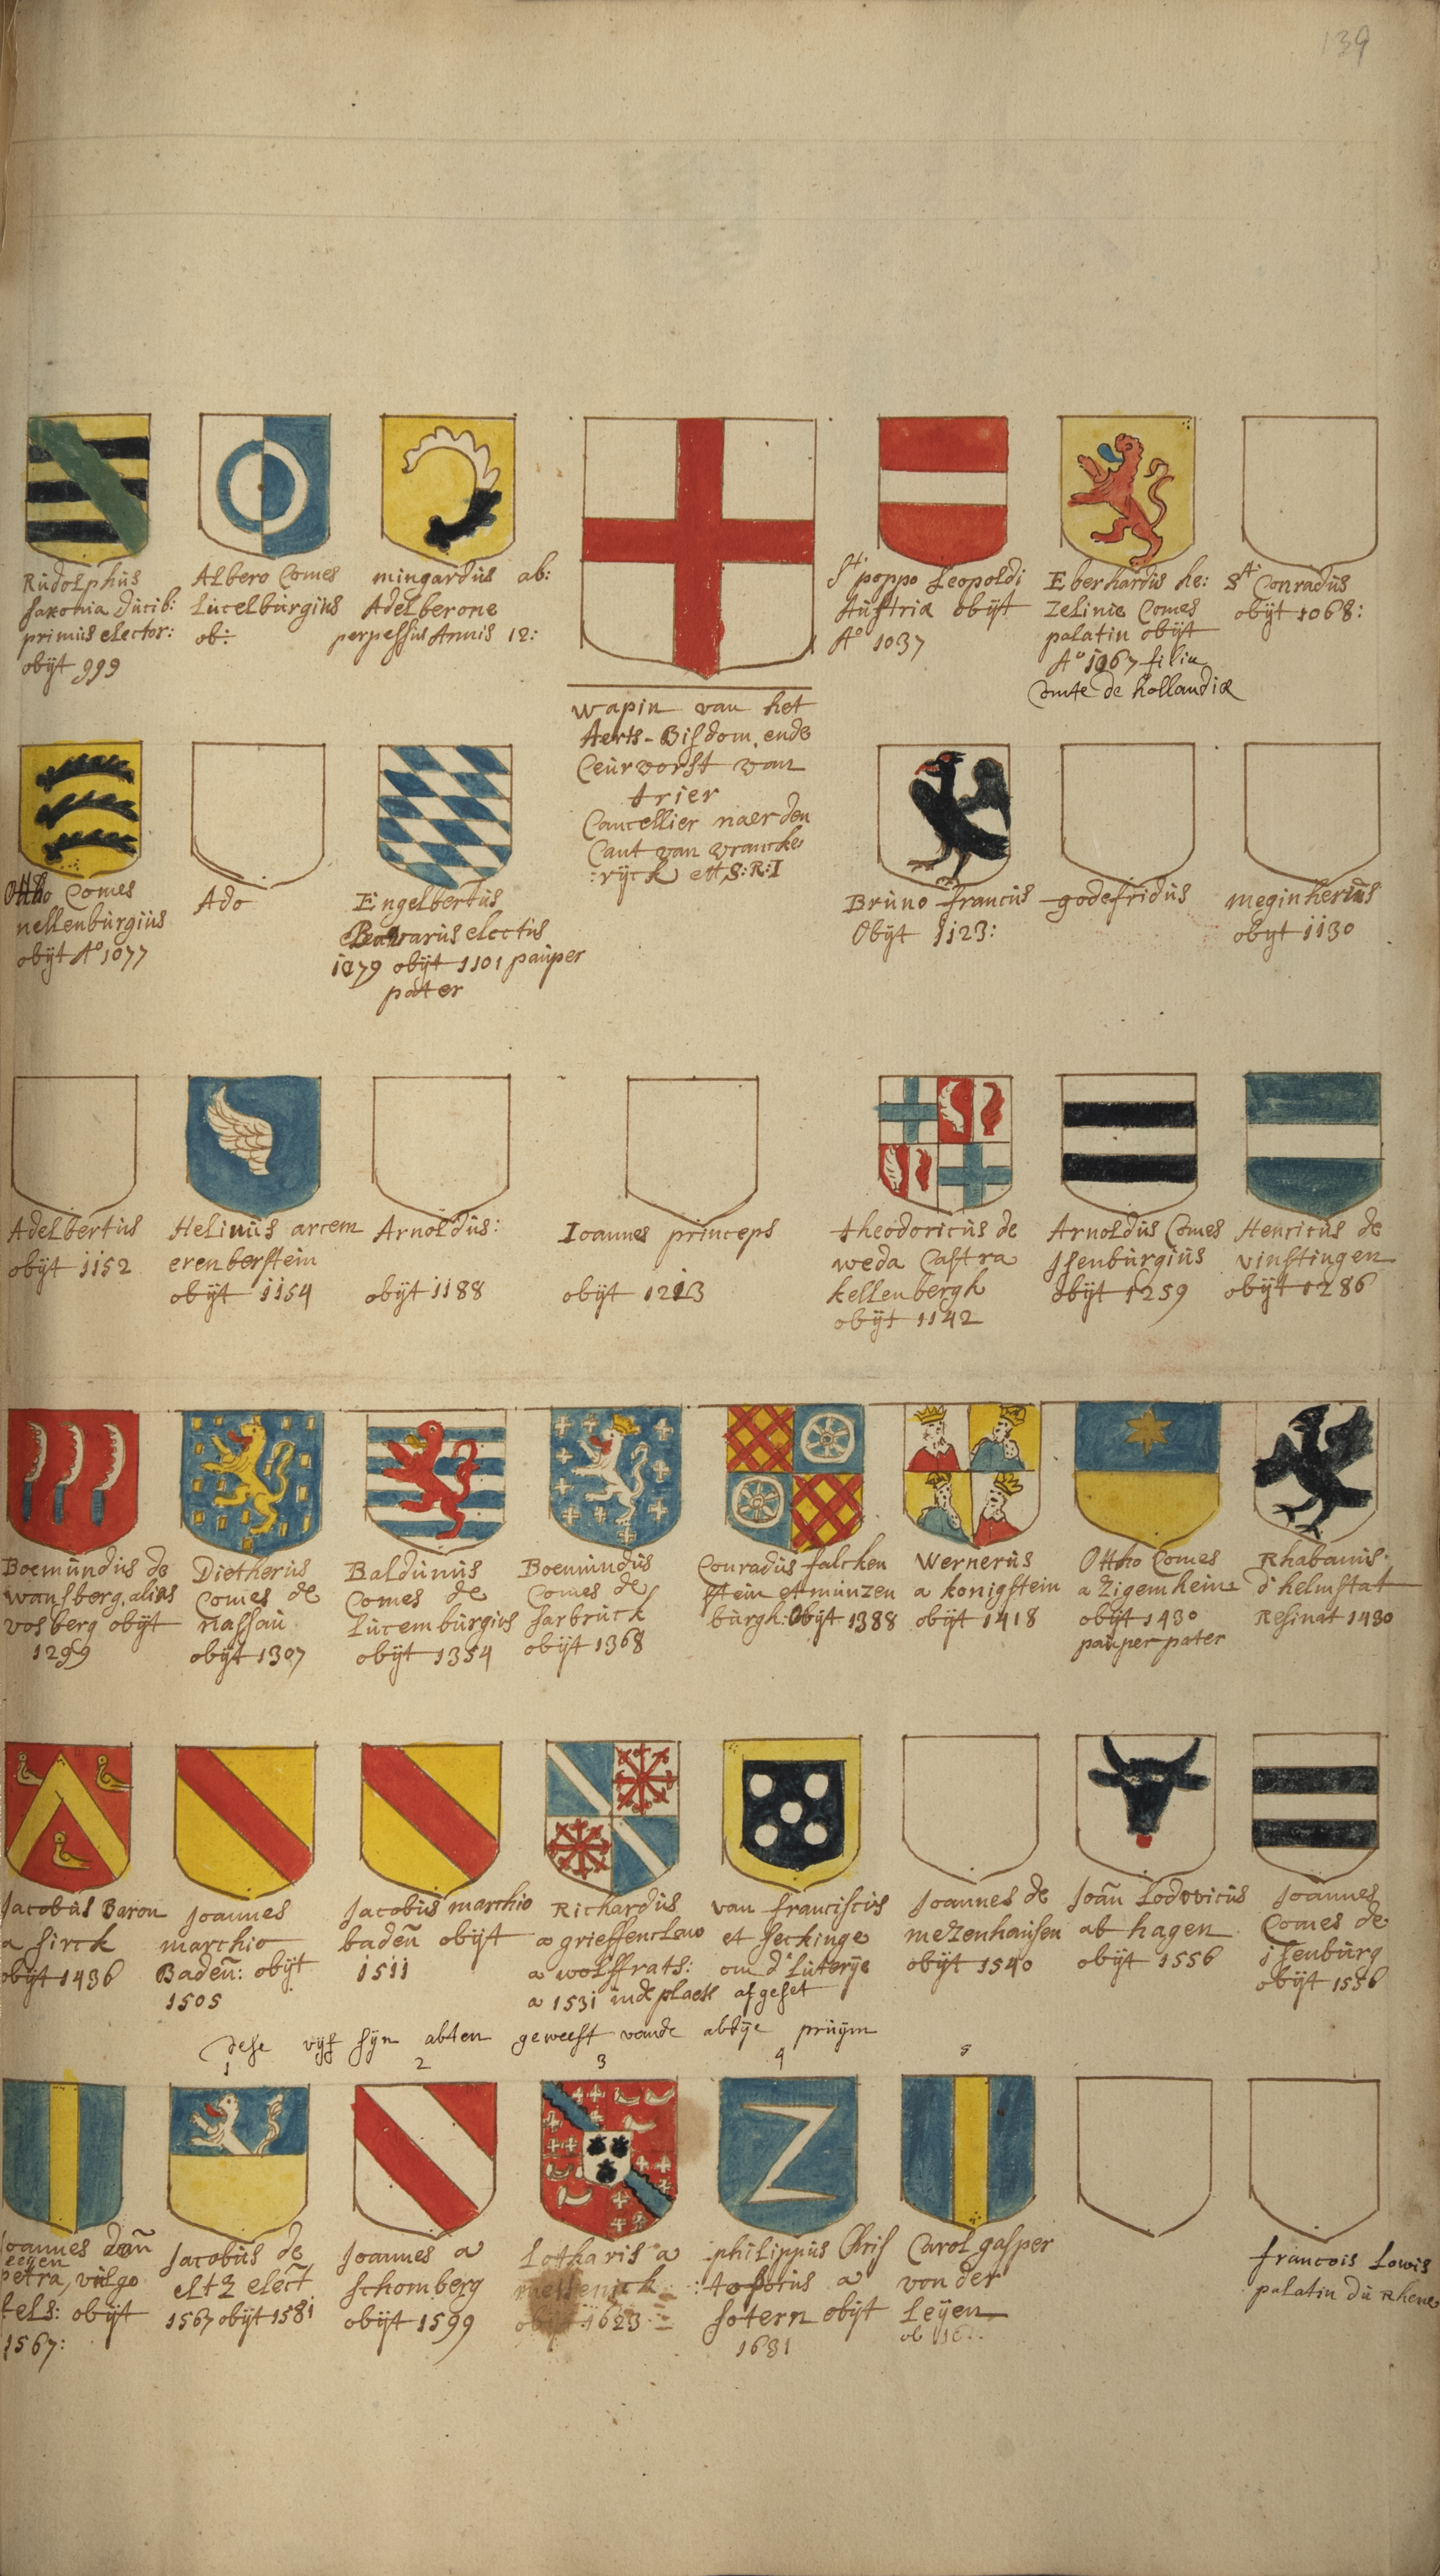 139
Rudolphus
saxonia ducib:
primus elector:
obijt 999
Albero Comes
Lucelburgius
ob:
mingardus ab:
Adelberone
perpessus Annis 12:
Wapin van het
Aerts-Bisdom, ende
Ceurvorst van
trier
Cancellier naer den
Cant van vrancke
:rijck ett S:R:I
St poppo Leopoldi
Austriæ obijt
Ao 1037
Eberhardus he:
Zelinie Comes
palatin obijt
Ao 1067 filia
Comte de hollandiæ
St Conradus
obijt 1068:
Ottho Comes
nellenburgius
obijt Ao 1077
Ado
Engelbertus
Bavarus electus
1079 obijt 1101 pauper
pater
Bruno francus
Obijt 1123:
godefridus
meginherus
obijt 1130
Adelbertus
obijt 1152
Helinus arcem
erenberstein
obijt 1154
Arnoldus:
obijt 1188
Ioannes princeps
obijt 1213
theodoricus de
weda Castra
kellenbergh
obijt 1142
Arnoldus Comes
Isenburgius
obijt 1259
Henricus de
vinstingen
obijt 1286
Boemundus de
wansberg, alias
vosberg obijt
1299
Dietherus
Comes de
nassau
obijt 1307
Balduinus
Comes de
Lucemburgius
obijt 1354
Boemundus
Comes de
sarbruck
obijt 1368
Conradus falcken
stein et munzen
burgh: Obijt 1388
Wernerus
a konigstein
obijt 1418
Ottho Comes
a Zigemheine
obijt 1430
pauper pater
Rhabanus
d'helmstat
Resinat 1430
Jacobus Baron
a sirck
obijt 1436
Joannes
marchio
Baden: obijt
1505
Jacobus marchio
baden obijt
1511
Richardus
a grieffenclauo
a wolffrats:
a 1531 inde plaets
van franciscus
et seckinge
om d'luterije
afgeset
Joannes de
mezenhausen
obijt 1540
Joan Lodovicus
ab hagen
obijt 1556
Joannes
Comes de
isenburg
obijt 1556
dese vijf sijn abten geweest vande abdije pruijm
1 2 3 4 5
Joannes
petra, vulgo
fels: obijt
1567:
Jacobus de
eltz elect
1567 obijt 1581
Joannes a
schomberg
obijt 1599
Lotharis a
mettenick
obijt 1623
philippus Chris
:tophorus a
sotern obijt
1631
Carol gasper
von der
Leijen
ob
francois Lowis
palatin du Rhene